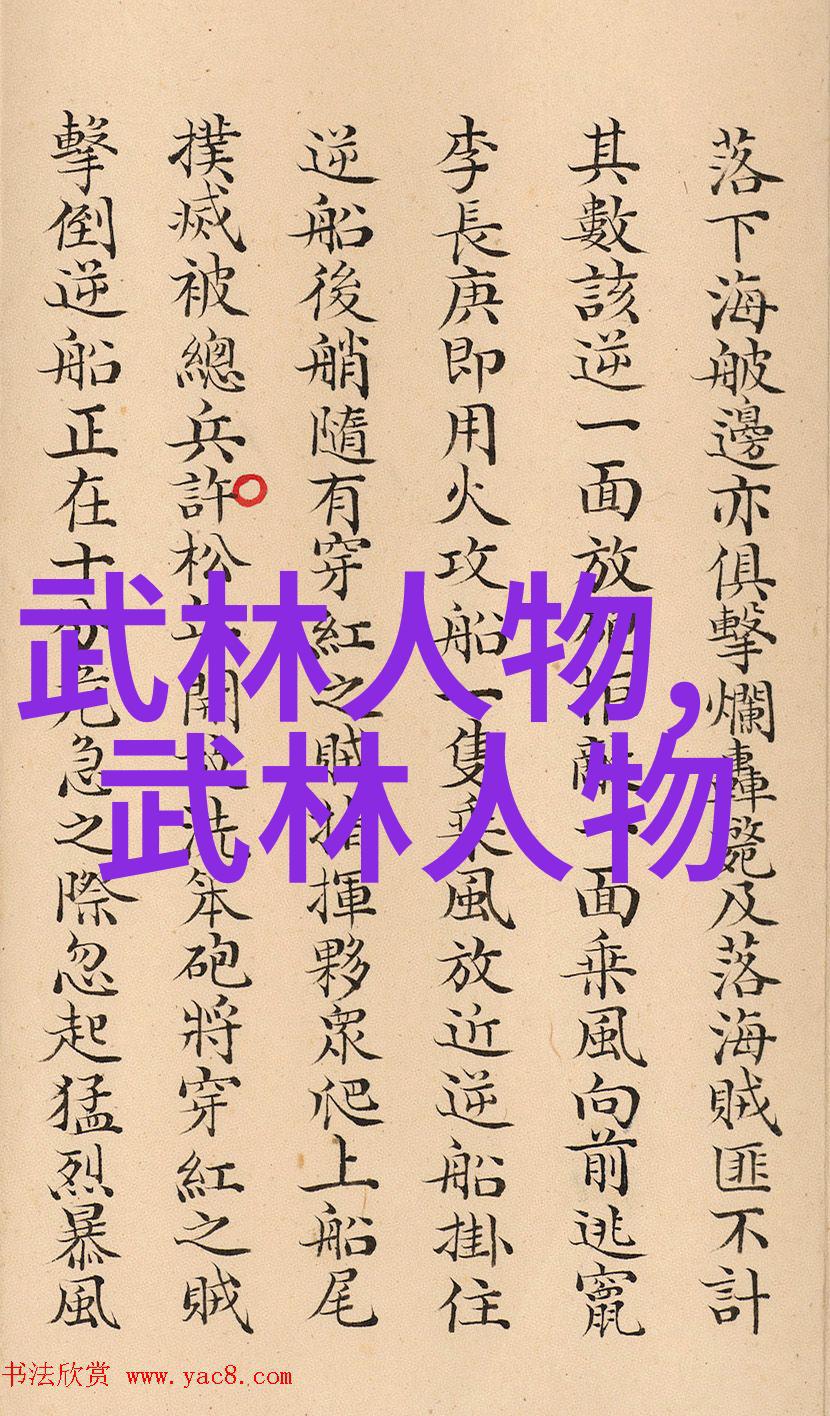 落下海邊亦俱擊爛轟斃及落海賊匪不計
其數該逆一面放砲拒敵一面乗風向前逃竄
李長庚即用火攻船一隻乗風放近逆船掛住
逆船後艄隨有穿紅之賊指揮夥眾爬上船尾
撲滅被總兵許松年開洗笨砲將穿紅之賊
擊倒逆船正在十分危急之際忽起猛烈暴風
武林人物,
武林人物
书法欣赏 www.yac8.com